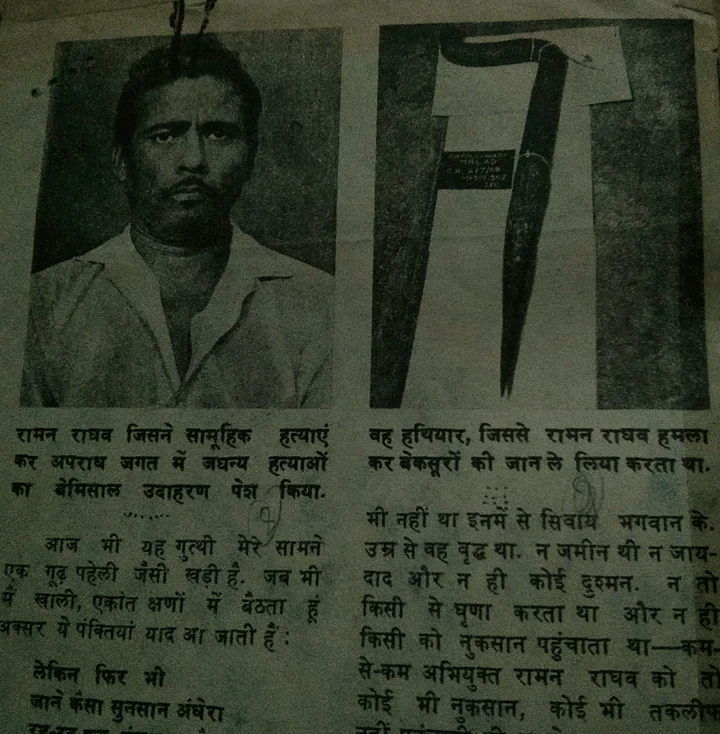 रामन राघव जिसने सामूहिक हत्याएं
कर अपराध जगत में जघन्य हत्याओं
का बेमिसाल उदाहरण पेश किया.
आज भी यह गुत्थी मेरे सामने
एक गूढ़ पहेली जैसी खड़ी है. जब भी
मैं खाली, एकांत क्षणों में बैठता हूं
अक्सर ये पंक्तियां याद आ जाती हैं :
लेकिन फिर भी
जाने कैसा सुनसान अंधेरा
MALAD
वह हथियार, जिससे रामन राघव हमला
कर बेकसूरों की जान ले लिया करता था.
भी नहीं था इनमें से सिवाय भगवान के.
उम्र से वह वृद्ध था. न जमीन थी न जाय-
दाद और न ही कोई दुश्मन. न तो
किसी से घृणा करता था और न ही
किसी को नुकसान पहुंचाता था—कम-
से-कम अभियुक्त रामन राघव को तो
कोई भी नुकसान, कोई भी तकलीफ